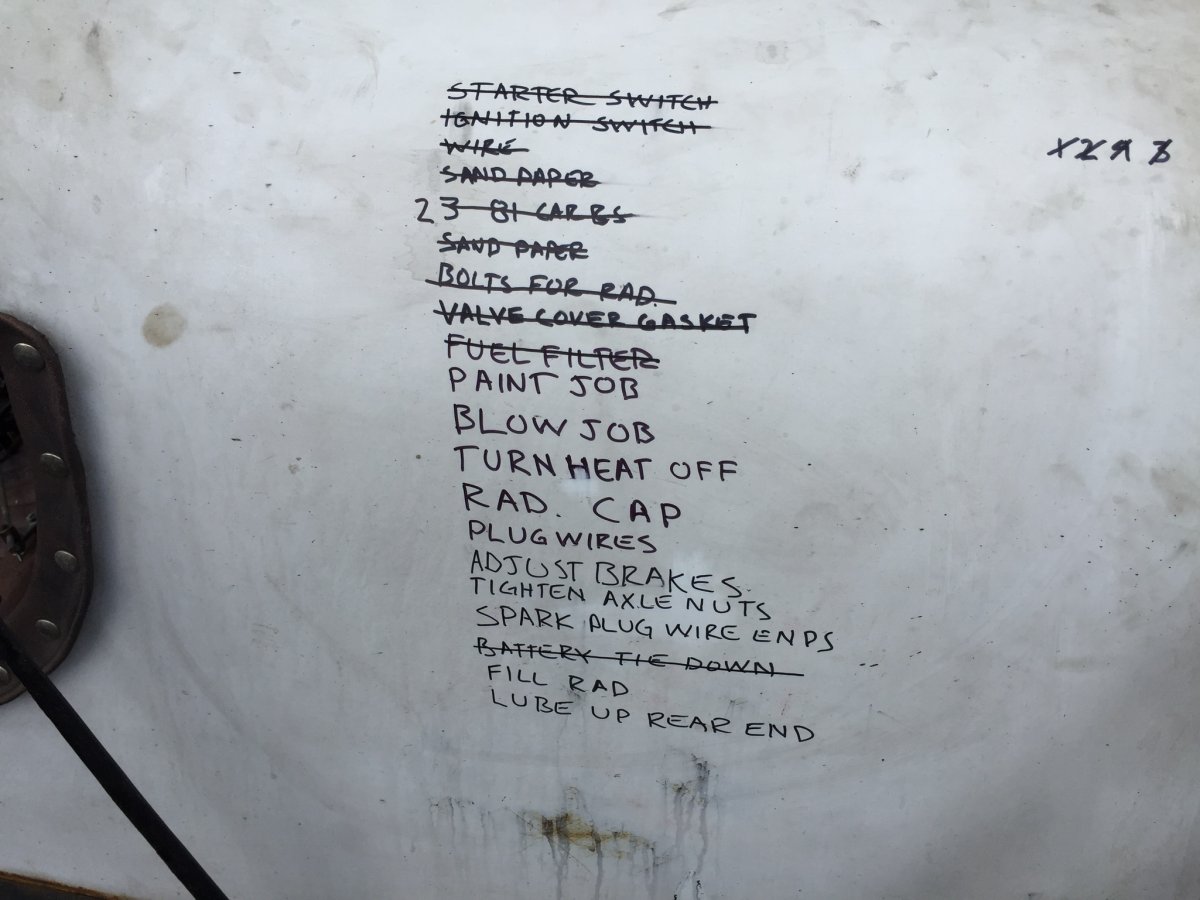 STARTER SWITCH
IGNITION SWITCH
WIRE
SAND PAPER
2 3 81 CARBS
SAND PAPER
BOLTS FOR RAD.
VALVE COVER GASKET
FUEL FILTER
PAINT JOB
BLOW JOB
TURN HEAT OFF
RAD. CAP
PLUG WIRES
ADJUST BRAKES
TIGHTEN AXLE NUTS
SPARK PLUG WIRE ENDS
BATTERY TIE DOWN
FILL RAD
LUBE UP REAR END